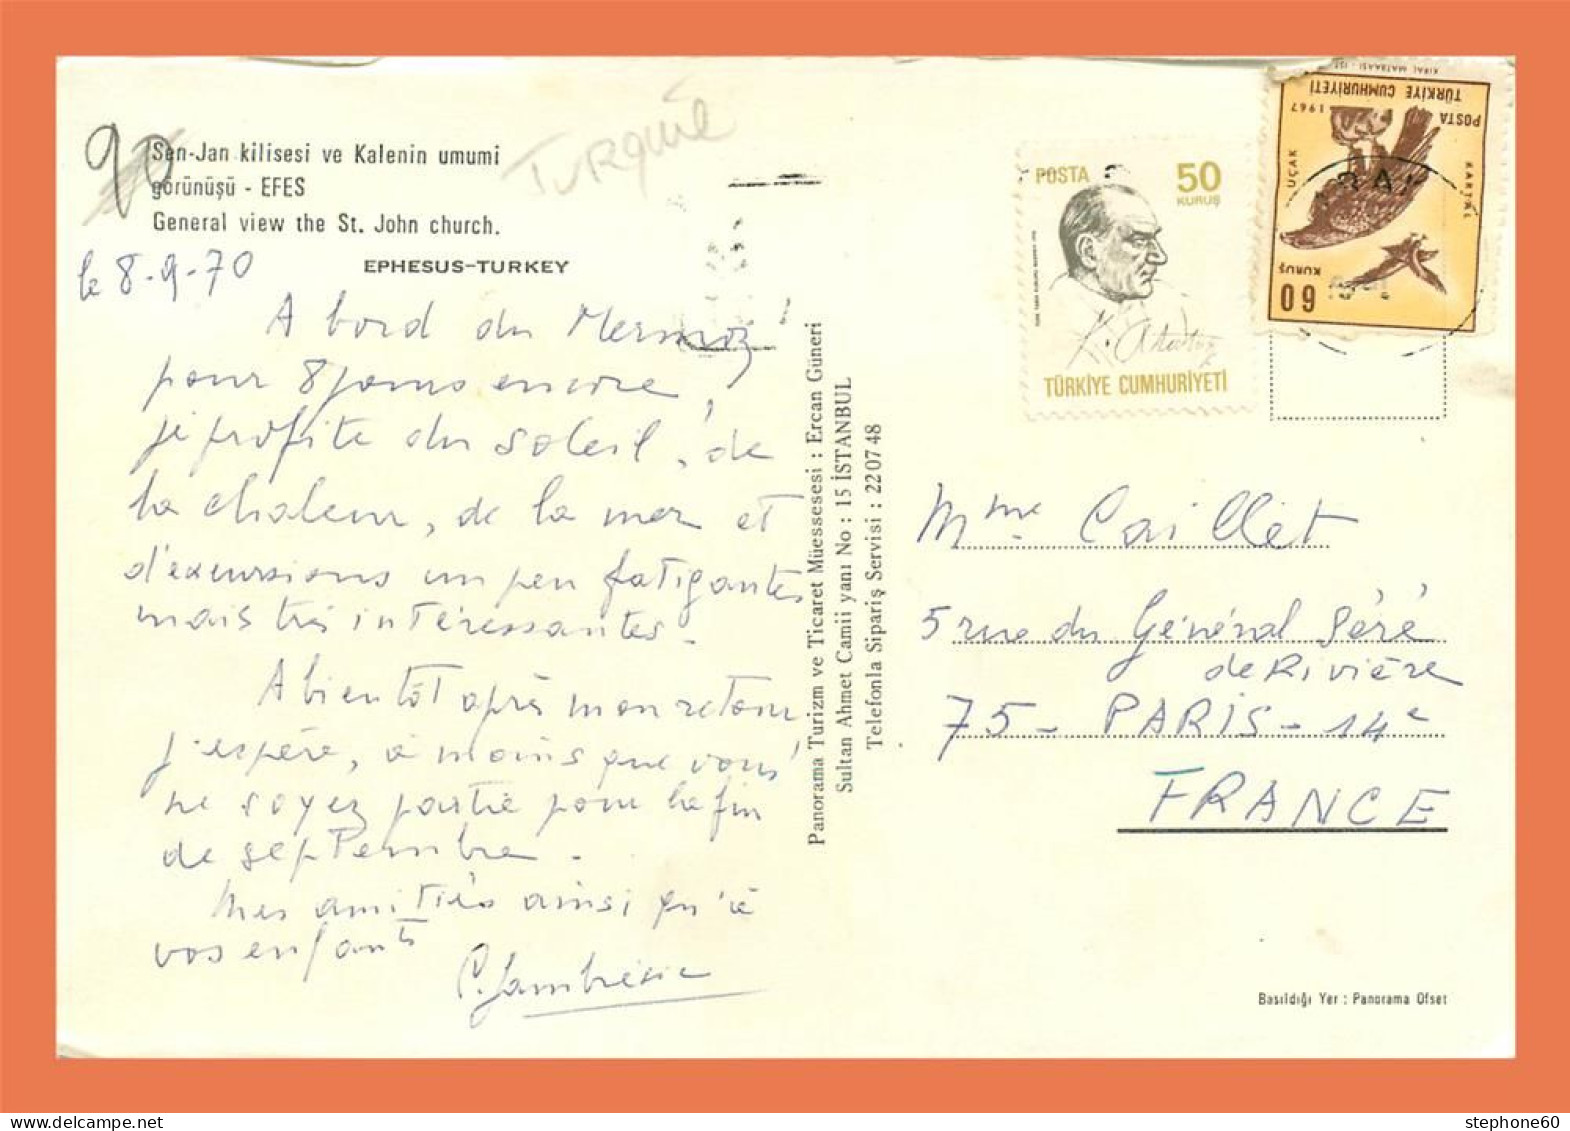 90
Sen-Jan kilisesi ve Kalenin umumi
görünüşü - EFES
General view the St. John church.
EPHESUS-TURKEY
TURQUIE
le 8-9-70
A bord du Mermoz
pour 8 jours encore,
je profite du soleil, de
la chaleur, de la mer et
d'excursions un peu fatigantes
mais très intéressantes.
A bientôt après mon retour
j'espère, à moins que vous
ne soyez partie pour la fin
de septembre.
Mes amitiés ainsi qu'à
vos enfants
Panorama Turizm ve Ticaret Müessesesi : Ercan Güneri
Sultan Ahmet Camii yanı No : 15 İSTANBUL
Telefonla Sipariş Servisi : 220748
POSTA 50
KURUŞ
K. Atatürk
TÜRKİYE CUMHURİYETİ
60
KURUŞ
UÇAK
KARTAL
1967
POSTA
TÜRKİYE CUMHURİYETİ
Mme Caillet
5 rue du Général Séré
de Rivière
75 - PARIS - 14e
FRANCE
Basıldığı Yer : Panorama Ofset
stephone60